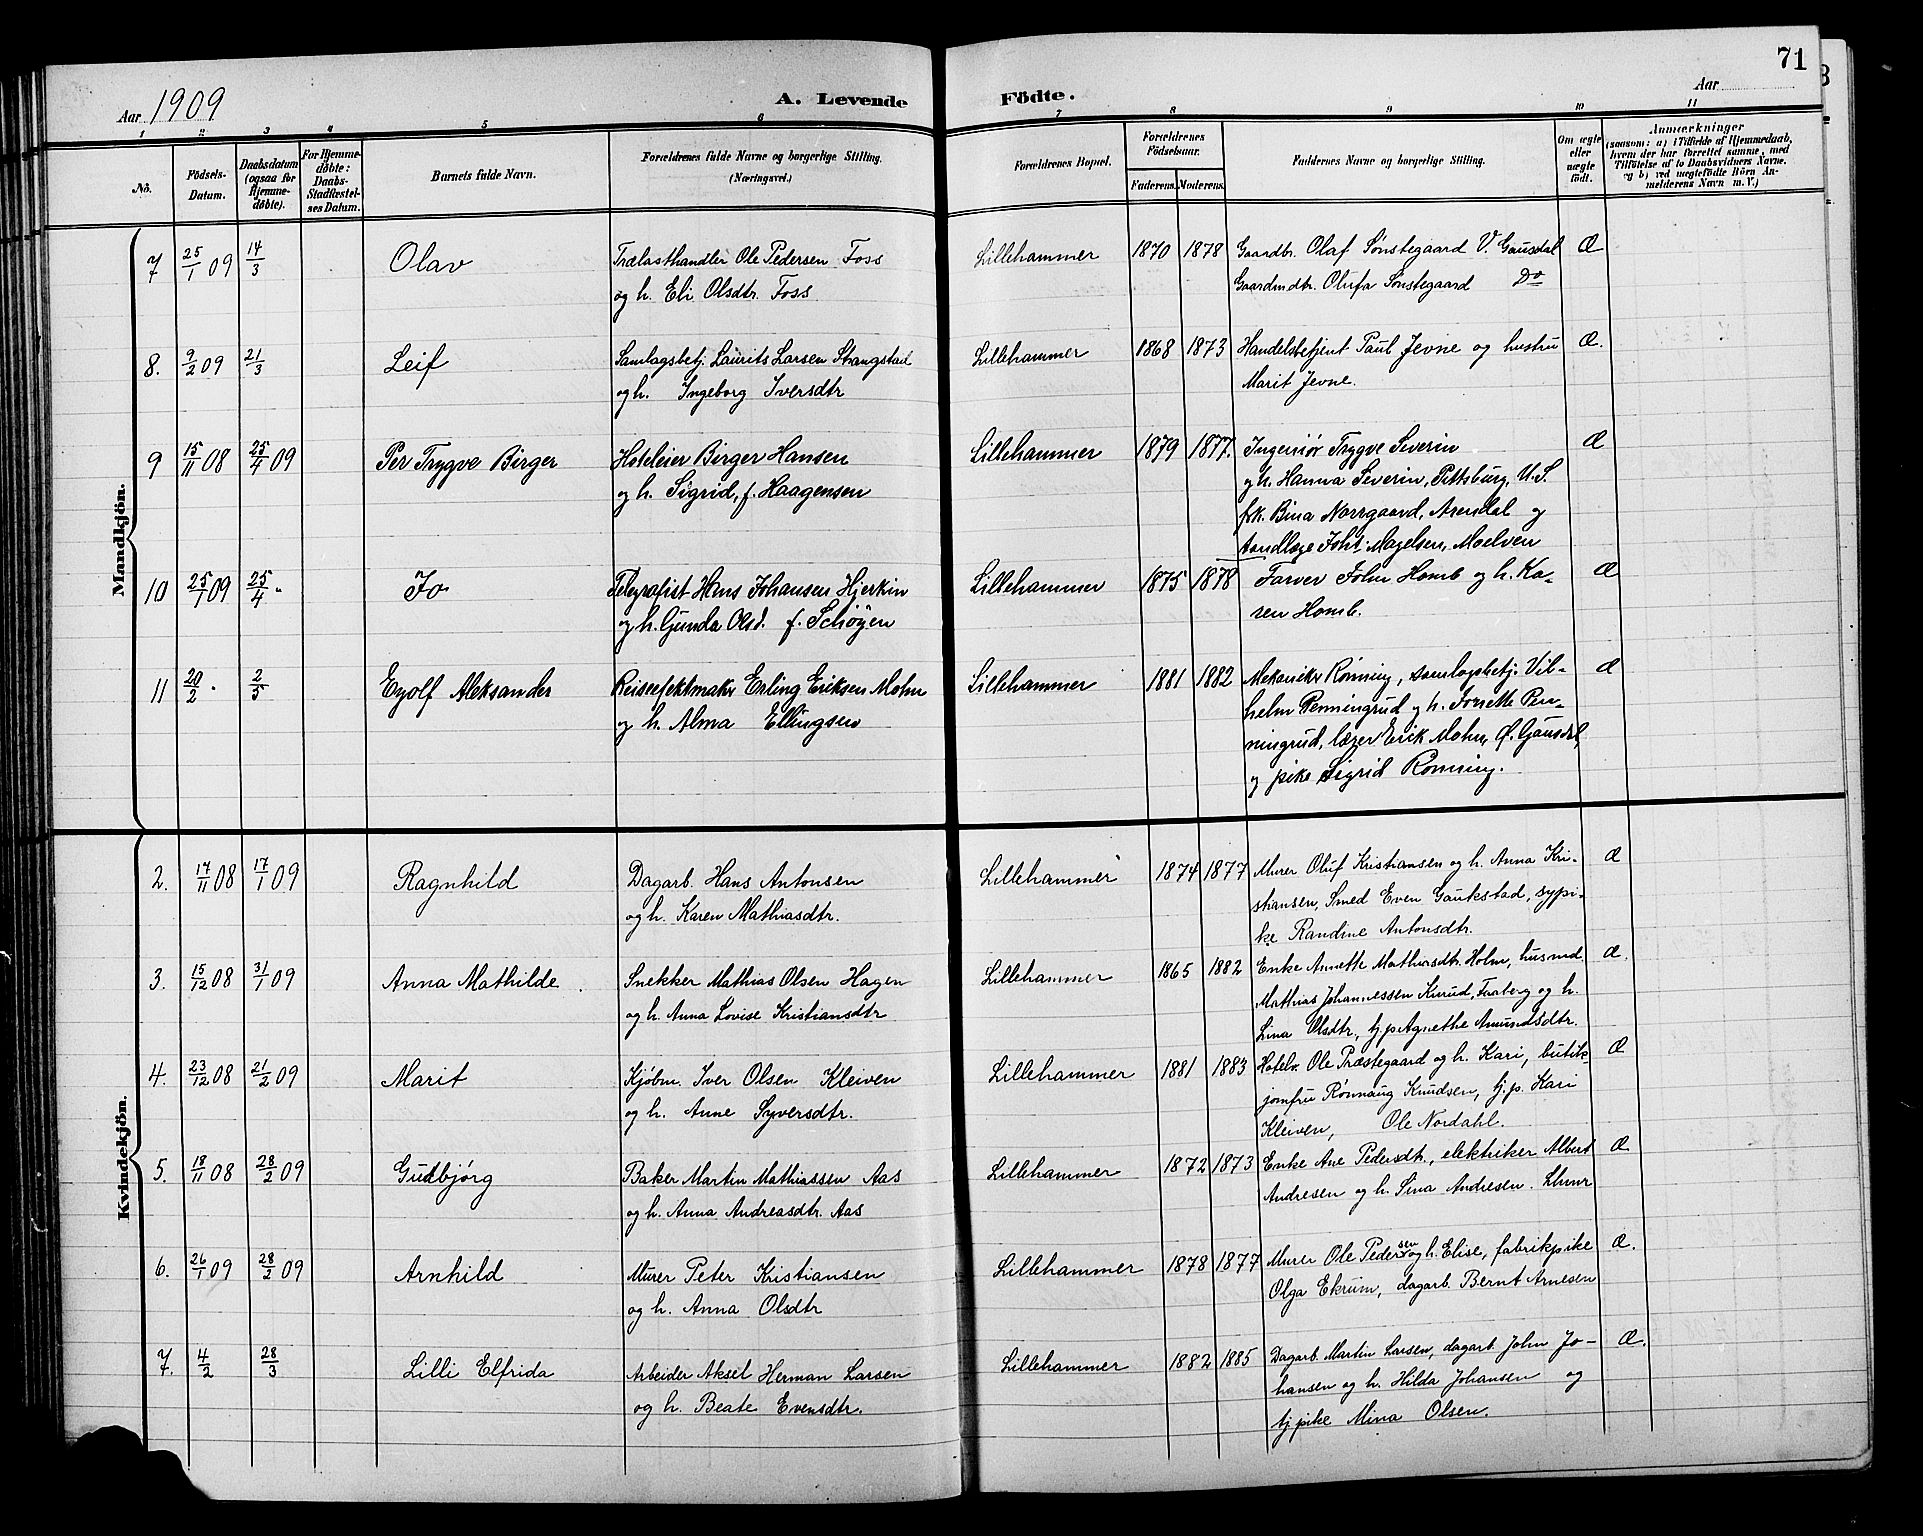 71
Aar 1909
A. Levende Födte.
Aar
1 2 3 4 5 6 7 8 9 10 11
No. Födsels-Datum. Daabsdatum (ogsaa for Hjemme-döbte). For Hjemme-döbte: Daabs-Stadfæstel-ses Datum. Barnets fulde Navn. Forældrenes fulde Navne og borgerlige Stilling. (Næringsvei.) Forældrenes Bopæl. Forældrenes Födselsaar. Faderens. Moderens. Faddernes Navne og borgerlige Stilling. Om ægte eller uægte födt. Anmærkninger (saasom: a) i Tilfælde af Hjemmedaab, hvem der har forrettet samme, med Tilföielse af to Daabsvidners Navne, og b) ved uægtefödte Börn An-melderens Navn m. V.)
Mandkjön.
7 25/1 09 14/3 Olav Trælasthandler Ole Pedersen Foss Lillehammer 1870 1878 Gaardbr. Olaf Sønstegaard V. Gausdal Æ
og h. Eli Olsdtr. Foss Gaardmdtr. Olufa Sønstegaard Do
8. 9/2 09 21/3 Leif Samlagsbetj. Laurits Larsen Strangstad Lillehammer 1868 1873 Handelsbetjent Paul Jevne og hustru Æ.
og h. Ingeborg Iversdtr Marit Jevne.
9 15/11 08 25/4 09 Per Trygve Birger Hoteleier Birger Hansen Lillehammer 1879 1877. Ingeniør Trygve Severin Æ
og h. Sigrid, f. Haagensen g h. Hanna Severin, Pittsburg, U.S.
frk. Bina Norrgaard, Arendal og
tandlæge Johs. Magelsen, Moelven
10 25/1 09 25/4 " Jo Telegrafist Hans Johansen Hjerkin Lillehammer 1875 1878 Farver John Homb og h. Ka- Æ
og h. Gunda Olsd. f. Schøyen ren Homb.
11 20/2 " 2/5 Eyolf Aleksander Reiseefektmakr Erling Eriksen Mohn Lillehammer 1881 1882 Mekanickr Rønning, samlagsbetj. Vil- Æ
og h. Alma Ellingsen helm Penningrud g h. Jonette Pen-
ningrud, lærer Erick Mohn, Ø. Gausdal,
g pike Sigrid Rønning.
Kvindekjön.
2. 17/11 08 17/1 09 Ragnhild Dagarb. Hans Antonsen Lillehammer 1874 1877 Murer Oluf Kristiansen og h. Anna Kri- Æ
og h. Karen Mathiasdtr. stiansen, Smed Even Gaukstad, sypi-
ke Randine Antonsdtr.
3. 15/12 08 31/1 09 Anna Mathilde Snekker Mathias Olsen Hagen Lillehammer 1865 1882 Enke Annette Mathiasdtr. Holm, husmd. Æ.
og h. Anna Lovise Kristiansdtr Mathias Johannessen Kurud, Faaberg og h.
Lina Olsdtr, tj.p Agnethe Amundsdtr.
4. 23/12 08 21/2 09 Marit Kjøbm. Iver Olsen Kleiven Lillehammer 1881 1883 Hotelv. Ole Præstegaard og h. Kari, butik- Æ
og h. Anne Syversdtr. jomfru Rønnaug Knudsen, tj.p. Kari
Kleiven, Ole Nordahl.
5. 18/11 08 28/2 09 Gudbjørg Baker Martin Mathiassen Aas Lillehammer 1872 1873 Enke Ane Pedersdtr., elektriker Albert Æ
og h. Anna Andreasdtr. Aas Andresen og h. Sina Andresen. Lhmr
6. 26/1 09 28/2 09 Arnhild Murer Peter Kristiansen Lillehammer 1878 1877 Murer Ole Pedersen og h. Elise, fabrikpike Æ.
og h. Anna Olsdtr Olga Ekrum, dagarb. Bernt Arnesen
7. 4/2 28/3 Lilli Elfrida Arbeider Aksel Herman Larsen Lillehammer 1882 1885 Dagarb. Martin Larsen, dagarb. John Jo- Æ.
og h. Beate Evensdtr. hansen og h. Hilda Johansen og
tj.pike Mina Olsen.